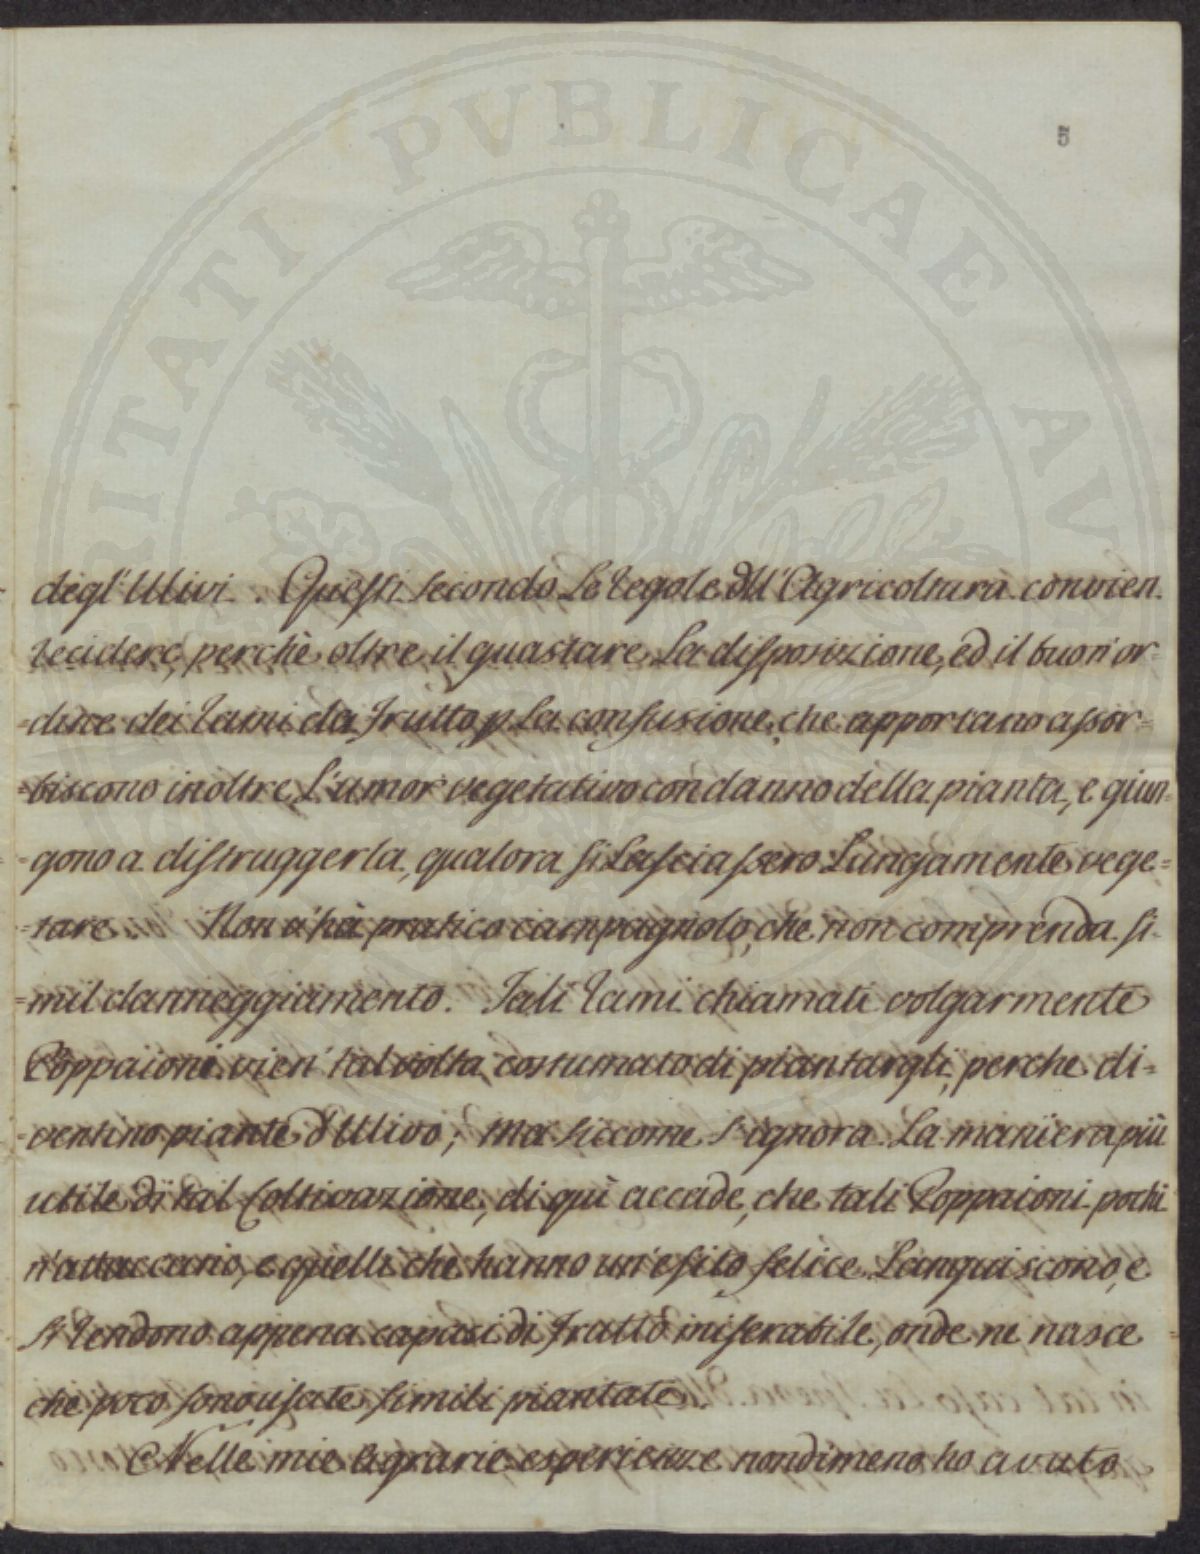 PROSPERITATI PVBLICAE AVGENDAE
5
degl'Ulivi. Questi secondo le regole dell'Agricoltura convien
recidere, perchè oltre il guastare la disposizione, ed il buon'or=
=dine dei rami da frutto p la confusione, che apportano assor=
=biscono inoltre l'umor vegetativo con danno della pianta, e giun=
=gono a distruggerla, qualora si lasciassero lungamente vege=
=tare. Non v'hà pratico campagnolo, che non comprenda si=
=mil danneggiamento. Tali rami chiamati volgarmente
Poppaioni vien' talvolta costumato di piantargli, perche di=
=ventino piante d'Ulivo; ma siccome s'ignora la maniera più
utile di tal Coltivazione, di quì accade, che tali Poppaioni pochi
n'attaccano, e quelli che hanno un'esito felice languiscono, e
si rendono appena capaci di frutto miserabile, onde ne nasce
che poco sono usate simili piantate.
Nelle mie agrarie esperienze nondimeno ho avuto